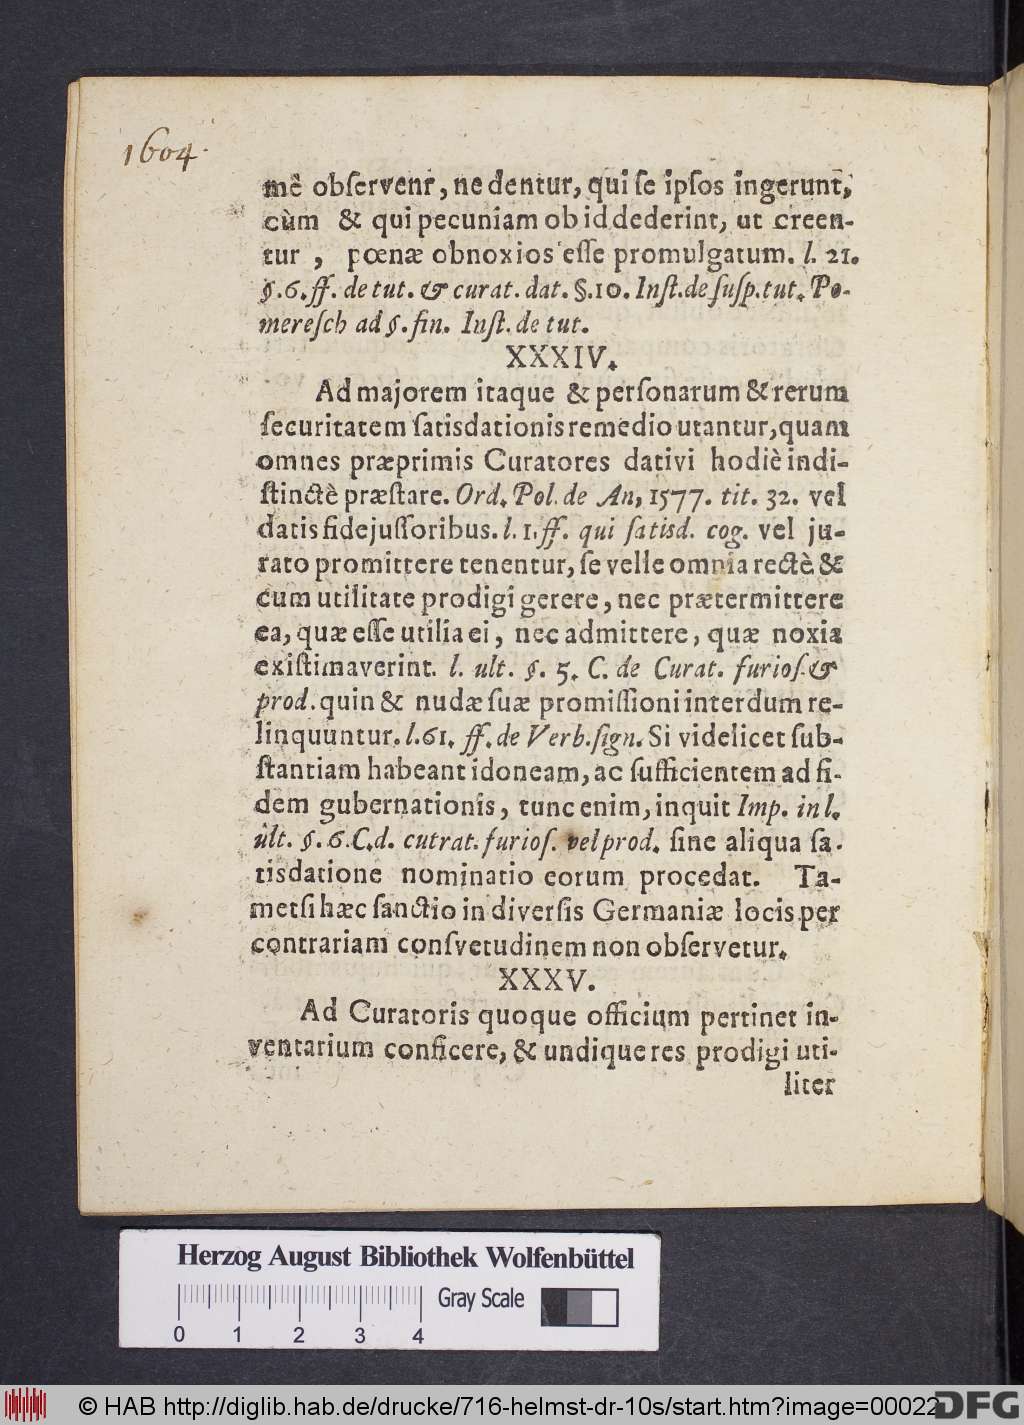 1604.
mè obſervent, ne dentur, qui ſe ipſos ingerunt,
cùm & qui pecuniam ob id dederint, ut creen-
tur, pœnæ obnoxios eſſe promulgatum. l. 21.
§. 6. ff. de tut. & curat. dat. §. 10. Inſt. de ſuſp. tut. Po-
mereſch ad §. fin. Inſt. de tut.
XXXIV.
Ad majorem itaque & perſonarum & rerum
ſecuritatem ſatisdationis remedio utantur, quam
omnes præprimis Curatores dativi hodiè indi-
ſtinctè præſtare. Ord. Pol. de An, 1577. tit. 32. vel
datis fidejuſſoribus. l. 1. ff. qui ſatisd. cog. vel ju-
rato promittere tenentur, ſe velle omnia rectè &
cum utilitate prodigi gerere, nec prætermittere
ea, quæ eſſe utilia ei, nec admittere, quæ noxia
exiſtimaverint. l. ult. §. 5. C. de Curat. furioſ. &
prod. quin & nudæ ſuæ promiſſioni interdum re-
linquuntur. l. 61. ff. de Verb. ſign. Si videlicet ſub-
ſtantiam habeant idoneam, ac ſufficientem ad fi-
dem gubernationis, tunc enim, inquit Imp. in l.
ult. §. 6. C. d. cutrat. furioſ. vel prod. ſine aliqua ſa-
tisdatione nominatio eorum procedat. Ta-
metſi hæc ſanctio in diverſis Germaniæ locis per
contrariam conſvetudinem non obſervetur.
XXXV.
Ad Curatoris quoque officium pertinet in-
ventarium conficere, & undique res prodigi uti-
liter
Herzog August Bibliothek Wolfenbüttel
Gray Scale
0 1 2 3 4
© HAB http://diglib.hab.de/drucke/716-helmst-dr-10s/start.htm?image=00022
DFG